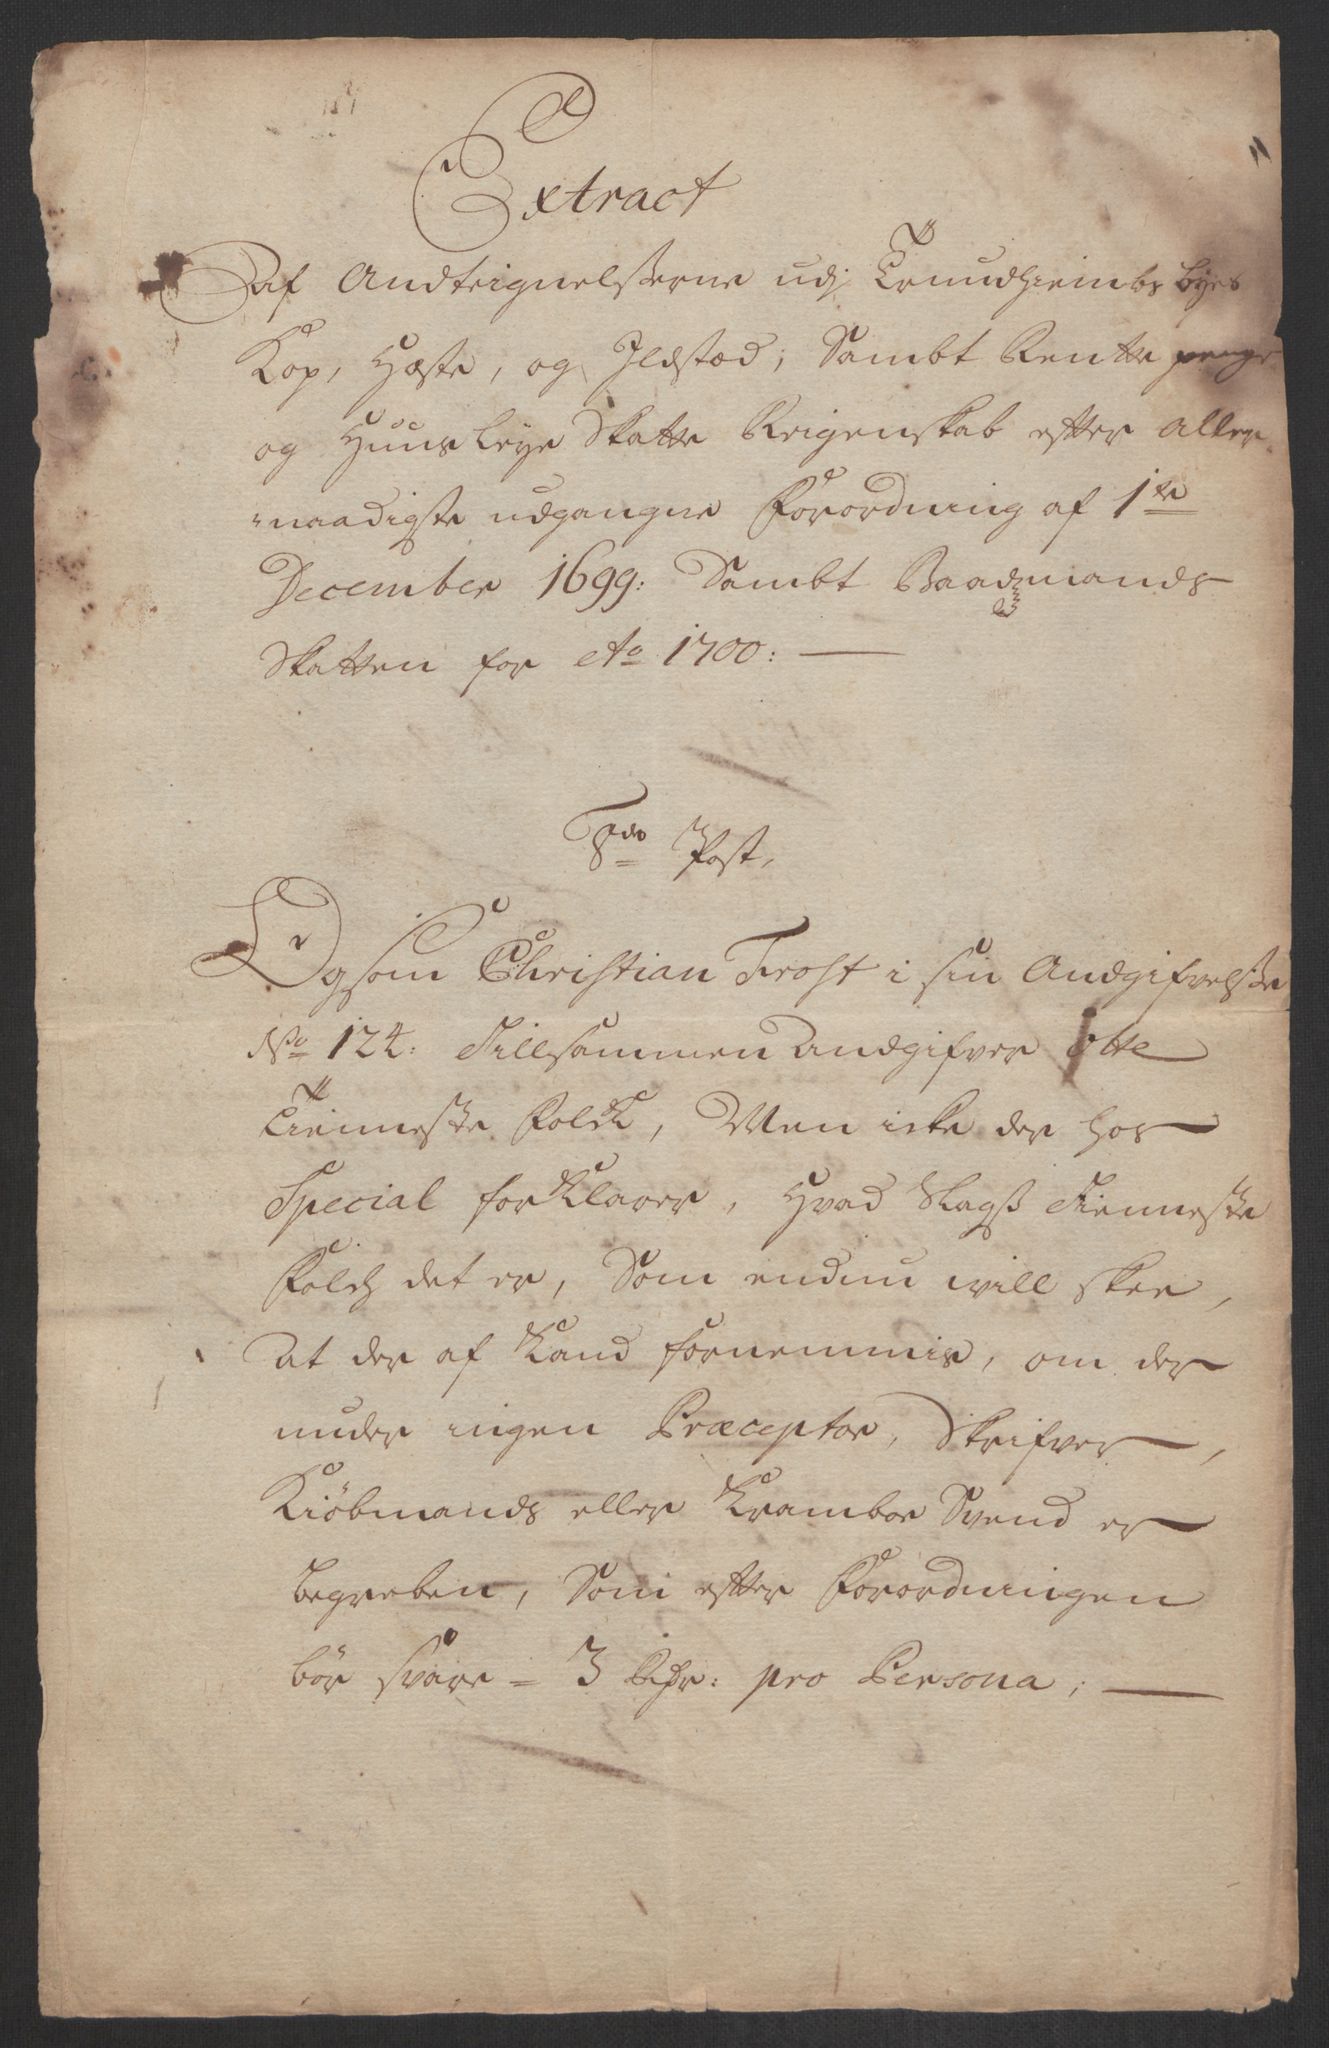 Extract
Af Andteignelsserne udj Trundhiembs byes
Kop, Hæste, og Ildsted, Sambt Rentte penge
og Huus leye Skatte Reigenskab efter aller
naadigste udgangne Forordning af 1te
December 1699: Sambt Baadzmands
Skatten for Ao 1700:
8de Post,
Og som Christian Frost i sin Andgifvelsse
No 124: Tillsammen Andgifver Otte
Tienneste Folck, Men icke der hos
Special forklarer, Hvad Slags Tienneste
Folch det er, Som endnu will skee,
At der af kand fornemmis, om der
under ingen Præceptor, Skrifver,
Kiöbmands eller Kramboe Svend er
begreben, Som efter Forordningen
bör svare = 3 Rdr: pro Persona;